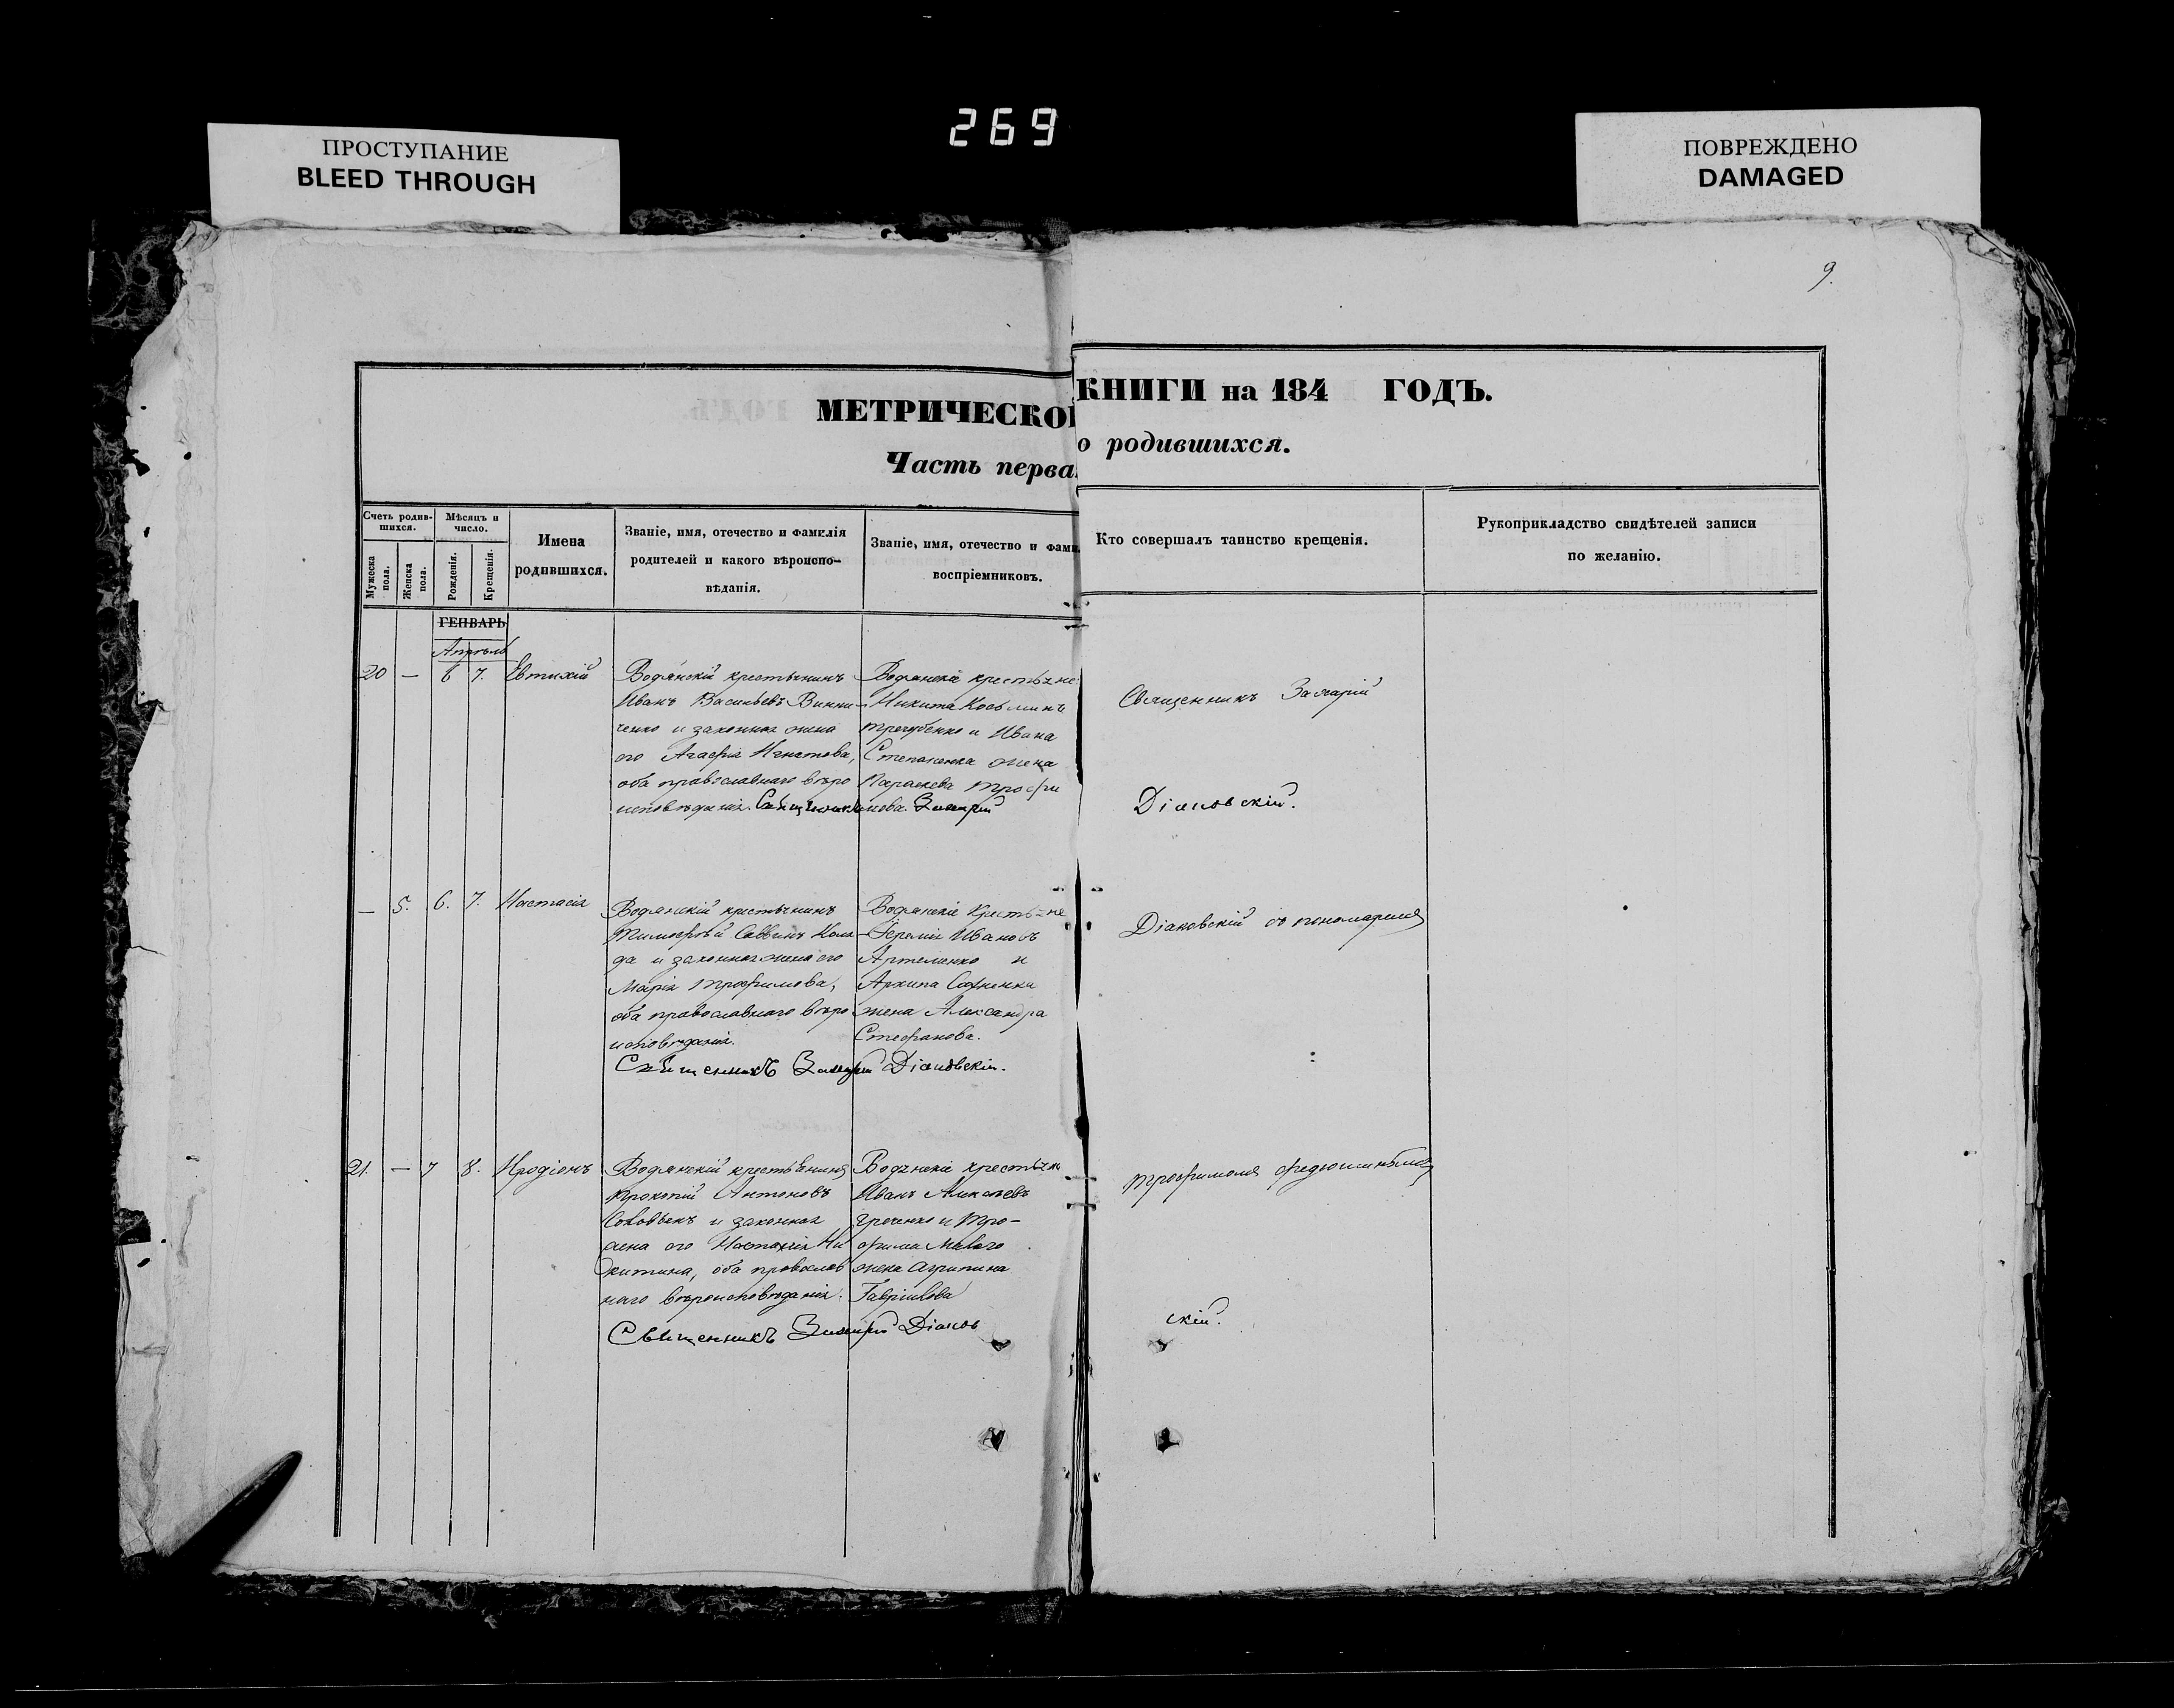 269
ПРОСТУПАНИЕ
BLEED THROUGH
ПОВРЕЖДЕНО
DAMAGED
9.
МЕТРИЧЕСКОЙ КНИГИ на 184 ГОДЪ.
Часть перва о родившихся.
Счетъ родив-
шихся.
Мужеска
пола.
Женска
пола.
Мѣсяцъ и
число.
Рожденія.
Крещенія.
Имена
родившихся.
Званіе, имя, отечество и фамилія
родителей и какого вѣроиспо-
вѣданія.
Званіе, имя, отечество и фами
воспріемниковъ.
Кто совершалъ таинство крещенія.
Рукоприкладство свидѣтелей записи
по желанію.
ГЕНВАРЬ
Апрѣль
20 — 6 7. Евтихій
Водянскій крестьянинъ
Иванъ Васильевъ Винни-
ченко и законная жена
его Агафія Игнатова,
оба православнаго вѣро
исповѣданія. Священникъ Захарій
Водянскіе крестьяне
Никита Косьминъ
Трегубенко и Ивана
Степаненка жена
Параскева Трофи
мова.
Священникъ Захарій
Діаковскій.
— 5. 6. 7. Настасія
Водянскій крестьянинъ
Тимофей Саввинъ Коля
да и законная жена его
Марія Трофимова,
оба православнаго вѣро
исповѣданія.
Водянскіе крестьяне
Іеремія Ивановъ
Артеменко и
Архипа
жена Александра
Стефанова.
Священникъ Захарій Діаковскій.
Діаковскій съ пономаремъ
21. — 7 8. Иродіонъ
Водянскій крестьянинъ
Прокопій Антоновъ
и законная
жена его Настасія Ни
китина, оба православ
наго вѣроисповѣданія.
Водянскіе крестьяне
Иванъ Алексѣевъ
Греченко и Тро-
фима
жена Агрипина
Гаврилова
Священникъ Захарій Діаков
скій.
Трофимомъ